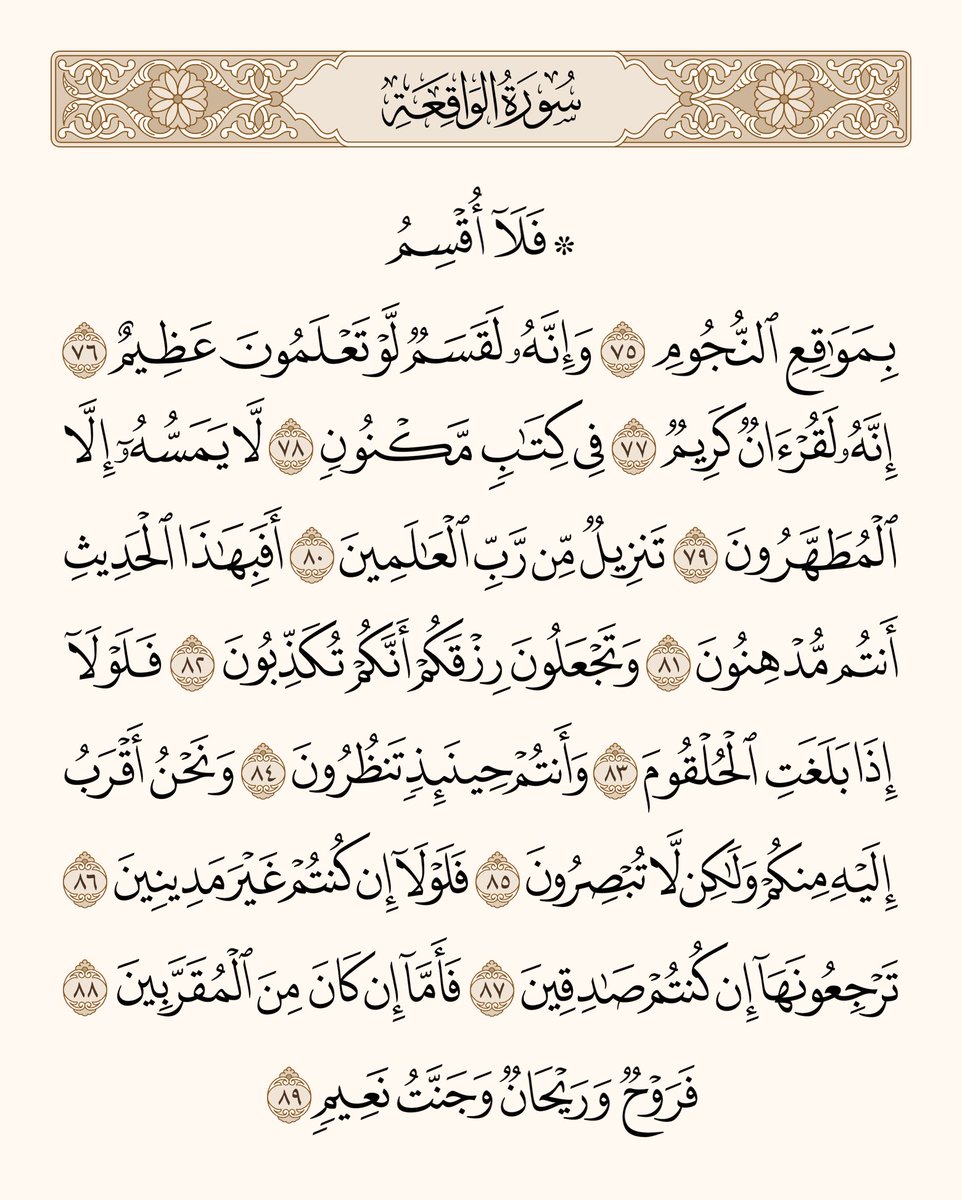 سُورَةُ الوَاقِعَةِ
۞ فَلَآ أُقۡسِمُ
بِمَوَٰقِعِ ٱلنُّجُومِ ٧٥ وَإِنَّهُۥ لَقَسَمٞ لَّوۡ تَعۡلَمُونَ عَظِيمٌ ٧٦
إِنَّهُۥ لَقُرۡءَانٞ كَرِيمٞ ٧٧ فِي كِتَٰبٖ مَّكۡنُونٖ ٧٨ لَّا يَمَسُّهُۥٓ إِلَّا
ٱلۡمُطَهَّرُونَ ٧٩ تَنزِيلٞ مِّن رَّبِّ ٱلۡعَٰلَمِينَ ٨٠ أَفَبِهَٰذَا ٱلۡحَدِيثِ
أَنتُم مُّدۡهِنُونَ ٨١ وَتَجۡعَلُونَ رِزۡقَكُمۡ أَنَّكُمۡ تُكَذِّبُونَ ٨٢ فَلَوۡلَآ
إِذَا بَلَغَتِ ٱلۡحُلۡقُومَ ٨٣ وَأَنتُمۡ حِينَئِذٖ تَنظُرُونَ ٨٤ وَنَحۡنُ أَقۡرَبُ
إِلَيۡهِ مِنكُمۡ وَلَٰكِن لَّا تُبۡصِرُونَ ٨٥ فَلَوۡلَآ إِن كُنتُمۡ غَيۡرَ مَدِينِينَ ٨٦
تَرۡجِعُونَهَآ إِن كُنتُمۡ صَٰدِقِينَ ٨٧ فَأَمَّآ إِن كَانَ مِنَ ٱلۡمُقَرَّبِينَ ٨٨
فَرَوۡحٞ وَرَيۡحَانٞ وَجَنَّتُ نَعِيمٖ ٨٩